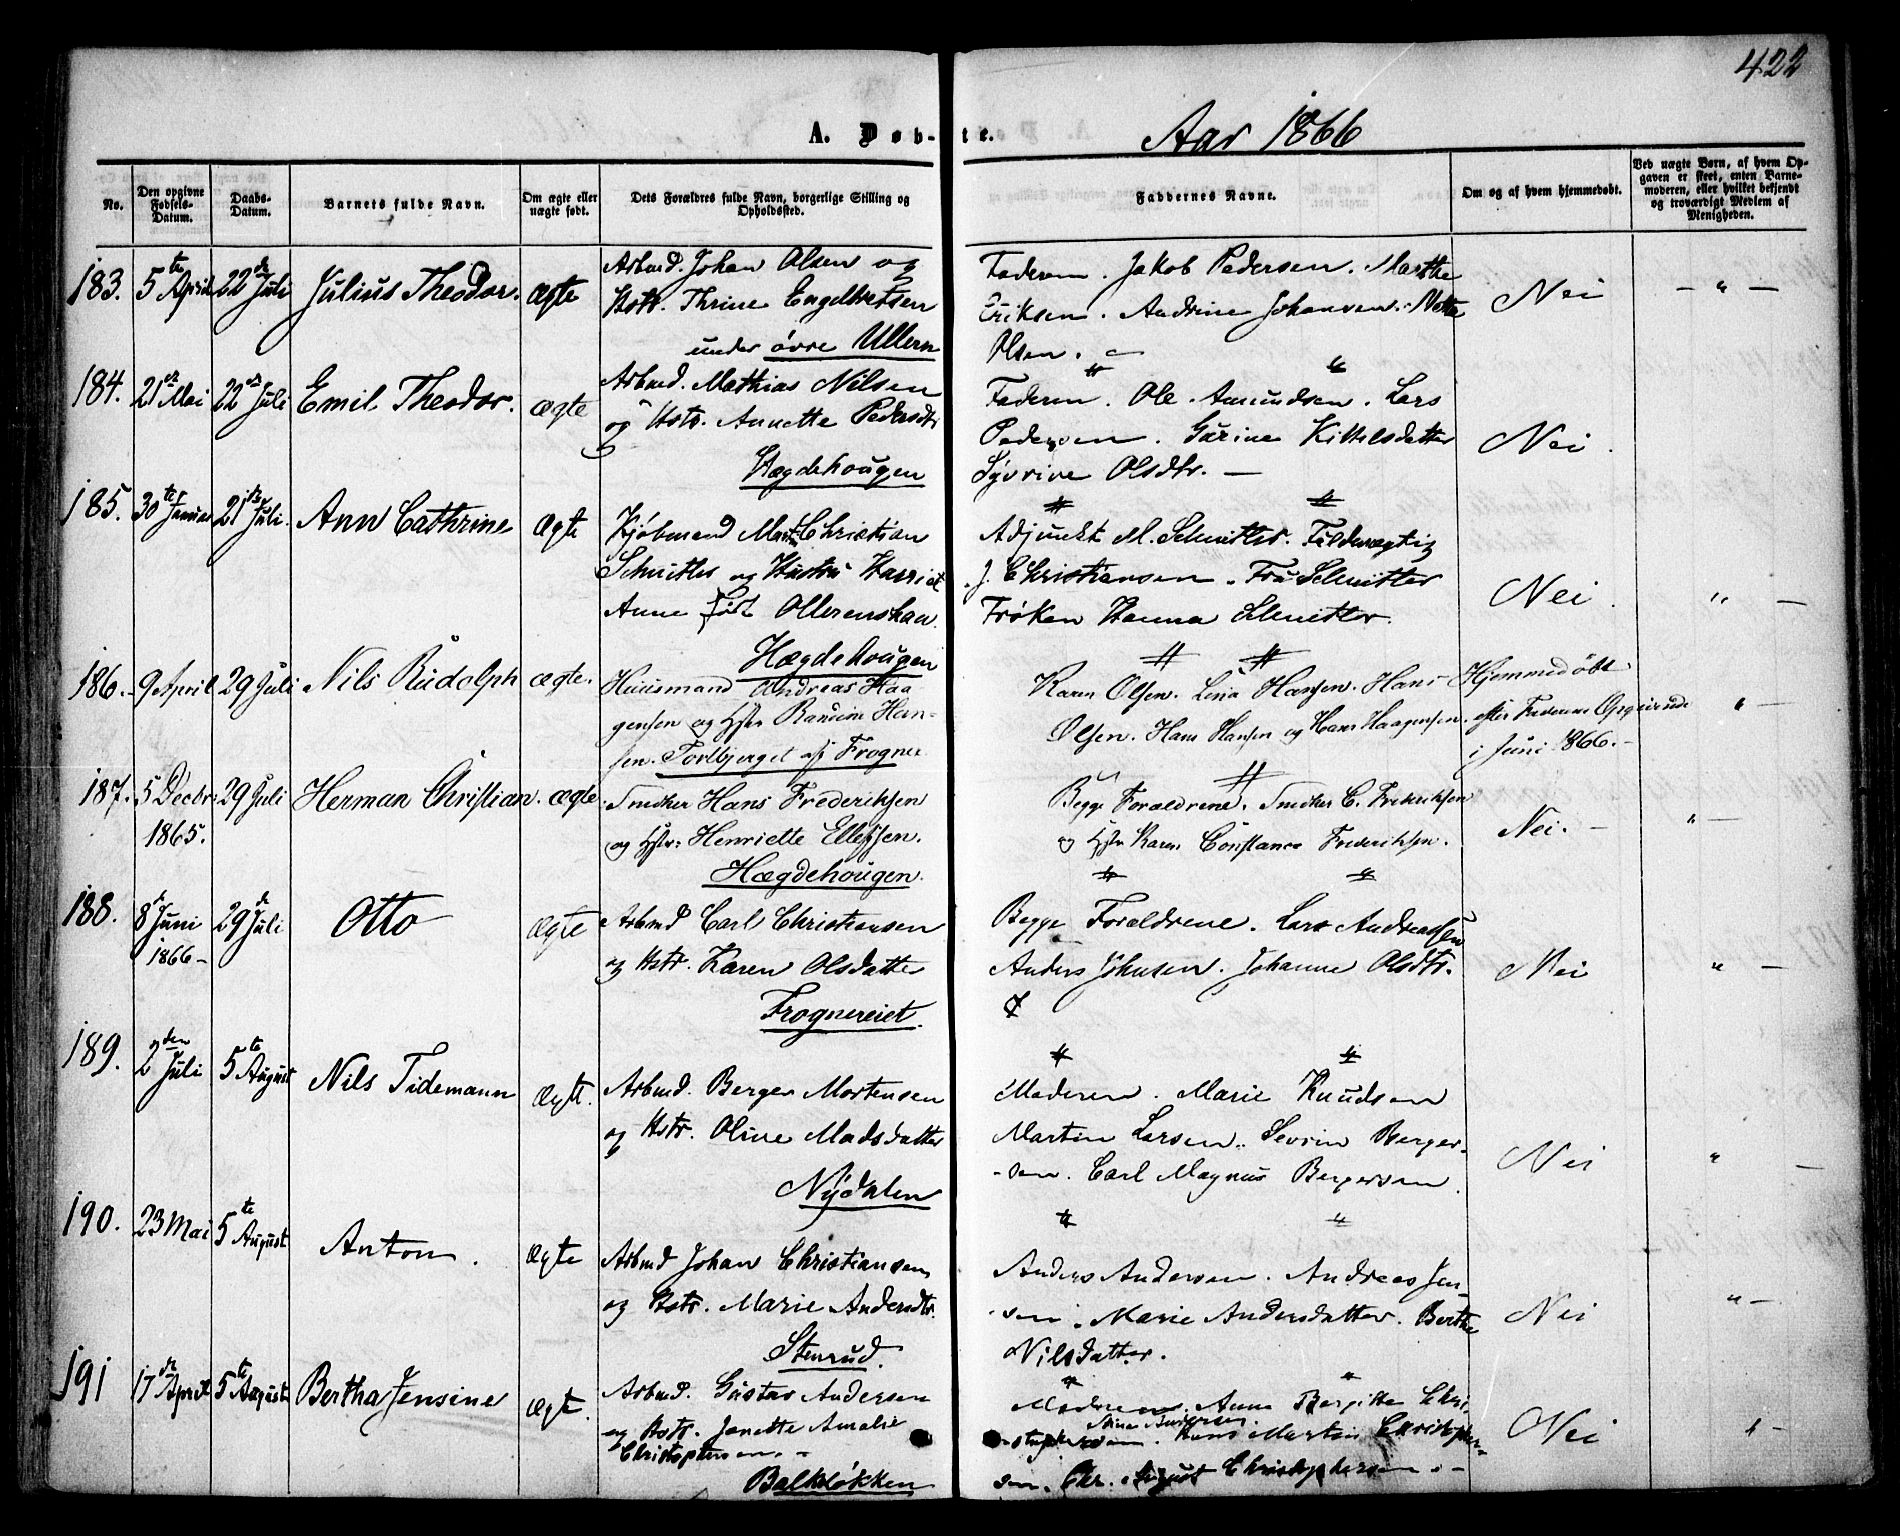 422
A. Døb-te. Aar 1866
No.
Den opgivne Fødsels-Datum.
Daabs-Datum.
Barnets fulde Navn.
Om ægte eller uægte født.
Dets Forældres fulde Navn, borgerlige Stilling og Opholdssted.
Faddernes Navne.
Om og af hvem hjemmedøbt.
Ved uægte Børn, af hvem Op-
gaven er skeet, enten Barne-
moderen, eller hvilket bekjendt
og troværdigt Medlem af
Menigheden.
183. 5te April 22de Juli Julius Theodor. Ægte
Arbmd. Johan Olsen og
Hstr. Thrine Engelbretsen
under øvre Ullern
Faderen. Jakob Pedersen. Marthe
Eriksen. Andrine Johansen. Nette
Olsen.
Nei - " -
184. 21de Mai 22de Juli Emil Theodor. Ægte
Arbmd. Mathias Nilsen
og Hstr. Annette Pedersdtr
Hægdehougen
Faderen. Ole Amundsen. Lars
Pedersen. Gurine Kittelsdatter
Syvrine Olsdtr. -
Nei.
185. 30te Januar 21de Juli. Ann Cathrine Ægte
Kjøbmand Mart. Christian
Schnitler og Hustru Harriet
Anne født Ollerenshaw.
Hægdehougen
Adjunkt M. Schnitler. Fuldmægtig
J. Christiansen. Fru Schnitler
Frøken Hanna Schnitler.
Nei. " -
186. 9 April 29 Juli Nils Rudolph ægte.
Huusmand Andreas Haa
gensen og Hstr Randine Han-
sen. Torlbjerget af Frogner
Karen Olsen. Lina Hansen. Hans
Olsen. Hans Hansen og Hans Haagensen.
Hjemmedøbt
efter Faderens Opgivende
i Juni 1866. -
" -
187. 5 Decbr. 1865. 29 Juli Herman Christian. ægte
Smeker Hans Frederiksen
og Hstr: Henriette Ellefsen.
Hægdehougen.
Begge Forældrene. Smeker C. Frederiksen
og Hstr Karen Constance Frederiksen.
Nei. - " -
188. 8de Juni 1866 - 29de Juli Otto Ægte
Arbmd Carl Christiansen
og Hstr. Karen Olsdatter
Frognereiet.
Begge Forældrene. Lars Andreassen
Anders Johnsen. Johanne Olsdtr.
Nei " -
189. 2den Juli 5te August Nils Tidemann Ægte.
Arbmd. Berger Mortensen
og Hstr. Oline Madsdatter
Nydalen
Moderen. Marie Knudsen
Martin Larsen. Sevrin Berger-
-sen. Carl Magnus Bergersen.
Nei " -
190. 23 Mai 5te August Anton. Ægte
Arbmd Johan Christiansen
og Hstr. Marie Andersdtr.
Stenrud.
Anders Andersen. Andreas Jen-
-sen. Marie Andersdatter. Berthe
Nilsdatter.
Nei " -
191 17de April 5te August Bertha Jensine Ægte.
Arbmd. Gustav Andersen
og Hstr. Janette Amalie
Christophersen. -
Balkeløkken
Moderen. Anna Birgitte Chri-
-stophersen. Hans Martin Christopher-
sen. Chr. August Christophersen. -
Nei " -